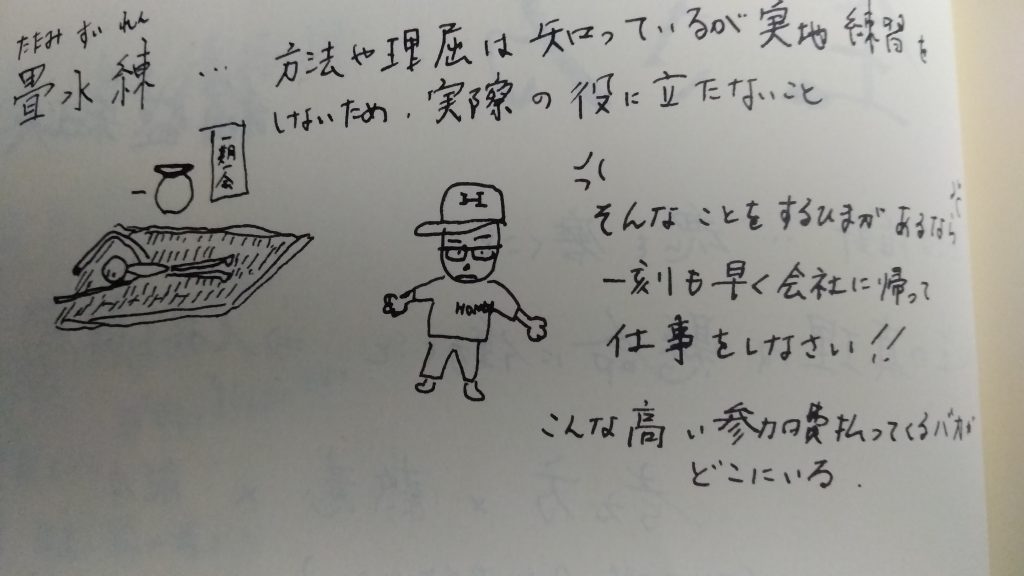 たたみ すい れん
畳水練 … 方法や理屈は知っているが実地練習を
しないため、実際の役に立たないこと
一期一会
H
HONDA
そんなことをするひまがあるなら
一刻りも早く会社に帰って
仕事をしなさい!!
こんな高い参加費払ってくるバカが
どこにいる.